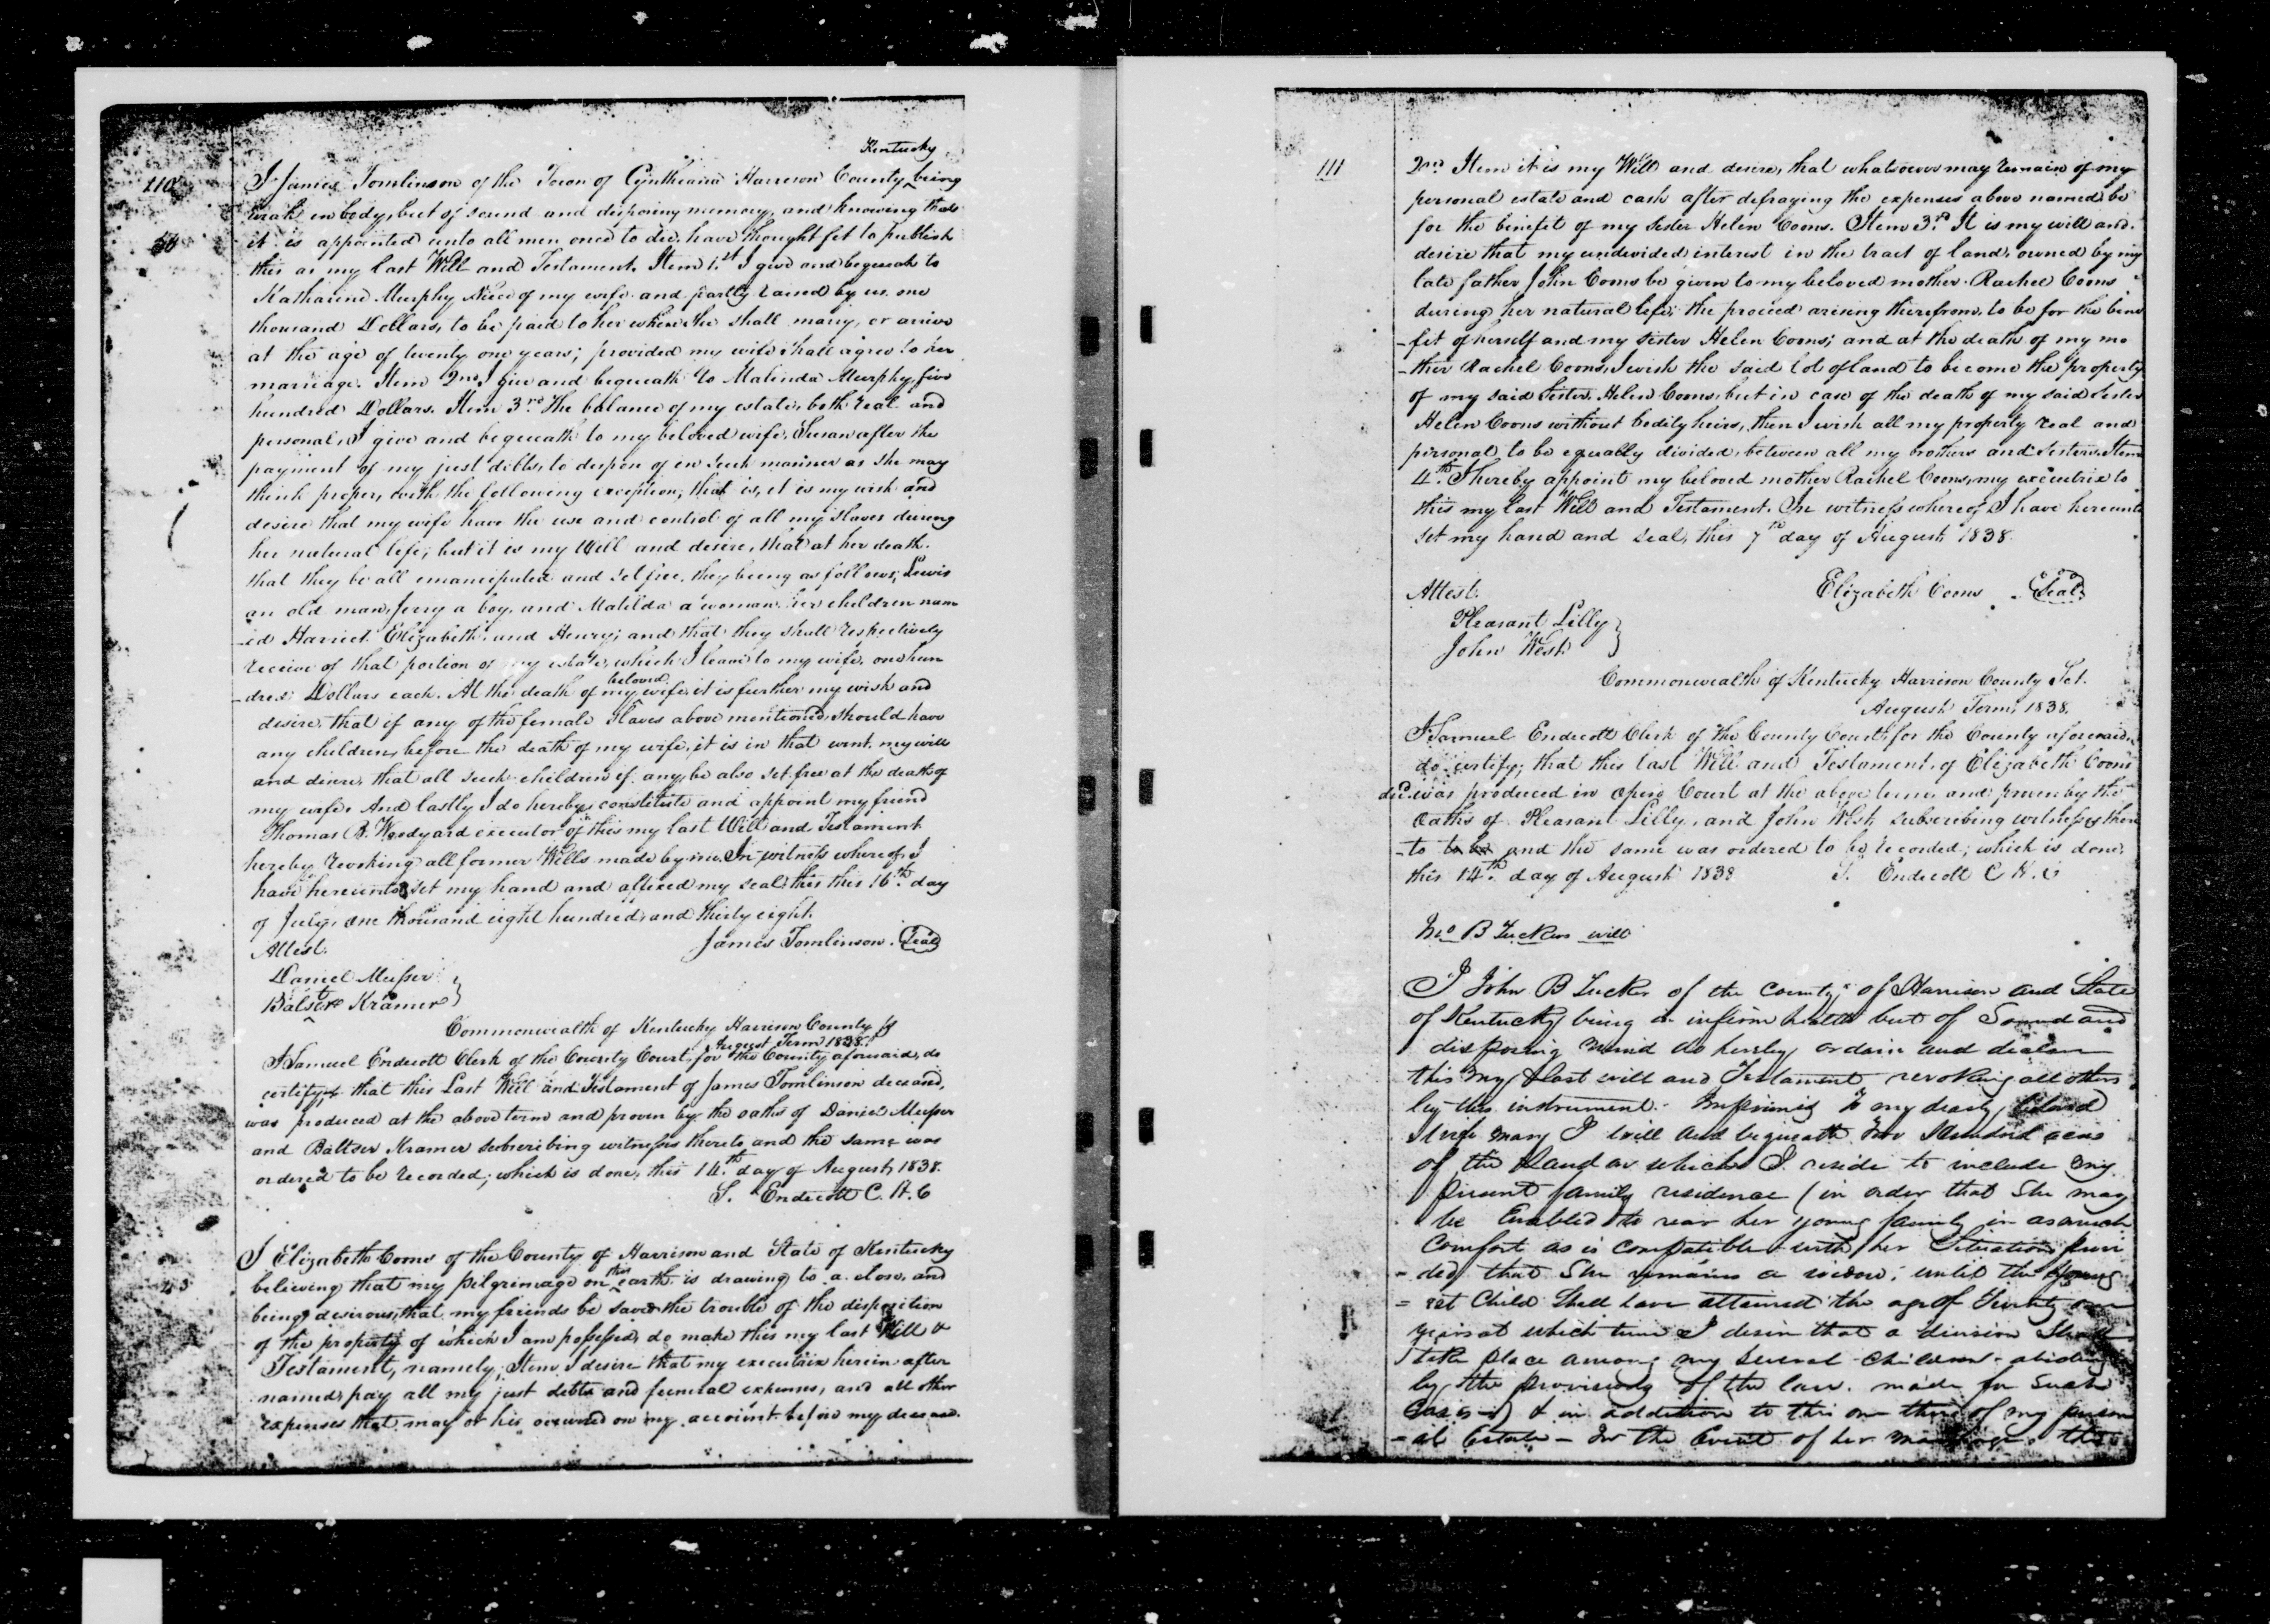 110
50
Kentucky
I James Tomlinson of the Town of Cynthiana Harrison County being
weak in body, but of sound and disposing memory, and knowing that
it is appointed unto all men once to die, have thought fit to publish
this as my last Will and Testament. Item 1.st I give and bequeath to
Katharine Murphy Niece of my wife and partly raised by us one
thousand Dollars, to be paid to her when she shall marry, or arrive
at the age of twenty one years; provided my wife shall agree to her
marriage. Item 2nd I give and bequeath to Malinda Murphy five
hundred Dollars. Item 3.rd The balance of my estate, both real and
personal, I give and bequeath to my beloved wife, Susan after the
payment of my just debts, to dispon of in such manner as she may
think proper, with the following exception; that is, it is my wish and
desire that my wife have the use and control of all my slaves during
her natural life; but it is my Will and desire, that at her death.
that they be all emancipated and set free, they being as follows; Lewis
an old man, Jerry a boy, and Matilda a woman, her children nam
-ed Harriet Elizabeth and Henry; and that they shall respectively
receive of that portion of my estate, which I leave to my wife, one hun
-dred Dollars each. At the death of my beloved wife, it is further my wish and
desire, that if any of the female slaves above mentioned, should have
any children, before the death of my wife, it is in that event, my will
and desire, that all such children if any, be also set free at the death of
my wife. And lastly I do hereby constitute and appoint my friend
Thomas B. Woodyard executor of this my last Will and Testament
hereby revoking all former Wills made by me. In witness whereof, I
have hereunto set my hand and affixed my seal, this this 16.th day
of July, one thousand eight hundred and thirty eight.
Attest. James Tomlinson. Seal
Daniel Musser
Baltser Kramer
Commonwealth of Kentucky Harrison County ss
August Term 1838.
I Samuel Endicott Clerk of the County Court, for the County aforesaid, do
certify, that this Last Will and Testament of James Tomlinson deceased,
was produced at the above term and proven by the oaths of Daniel Musser
and Baltser Kramer subscribing witnesses thereto and the same was
ordered to be recorded; which is done, this 14.th day of August, 1838.
S. Endicott C. H. C
I Elizabeth Coons of the County of Harrison and State of Kentucky
believing that my pilgrimage on this earth is drawing to a close, and
being desirous, that my friends be saved the trouble of the disposition
of the property of which I am possessed, do make this my last Will &
Testament, namely; Item I desire that my executrix herein after
named, pay all my just debts and funeral expenses, and all other
expenses that may or his occurred on my account before my decease.
111
2nd Item it is my Will and desire, that whatsoever may remain of my
personal estate and cash after defraying the expenses above named be
for the benefit of my sister Helen Coons. Item 3.rd It is my will and
desire that my undivided interest in the tract of land, owned by my
late father John Coons be given to my beloved mother Rachel Coons
during her natural life; the proceed arising therefrom, to be for the bene
-fit of herself and my sister Helen Coons; and at the death of my mo
-ther Rachel Coons, I wish the said lot of land to become the property
of my said Sister, Helen Coons, but in case of the death of my said Sister
Helen Coons without bodily heirs, then I wish all my property real and
personal, to be equally divided, between all my brothers and Sisters. Item
4.th I hereby appoint my beloved mother Rachel Coons, my executrix to
this my last Will and Testament. In witness whereof I have hereunto
set my hand and seal, this 7th day of August 1838.
Attest. Elizabeth Coons Seal
Pleasant Lilly
John West
Commonwealth of Kentucky Harrison County Sct.
August Term, 1838.
I Samuel Endicott Clerk of the County Court, for the County aforesaid,
do certify; that this last Will and Testament, of Elizabeth Coons
decd. was produced in open Court at the above term and proven by the
oaths of Pleasant Lilly, and John West, subscribing witnesses there
-to to be and the same was ordered to be recorded; which is done,
this 14th day of August 1838 S. Endicott C H. C
Jno B Tuckers will
I John B Tucker of the County of Harrison and State
of Kentucky being in infirm health but of Sound and
disposing mind do hereby ordain and declare
this my last will and Testament, revoking all others
by this instrument. Impriming To my dearly beloved
Wife Mary I will and bequeath Two Hundred acres
of the Land on which I reside to include my
present family residence (in order that she may
be Enabled to rear her young family in as much
Comfort as is compatible with her Situation provi
-ded that She remains a widow; until the young
=est Child Shall have attained the age of Twenty one
years at which time I desire that a division Shall
take place among my several children abiding
by the provisions of the law. made for such
Cases) & in addition to this one third of my person
-al Estate - In the Event of her marriage the